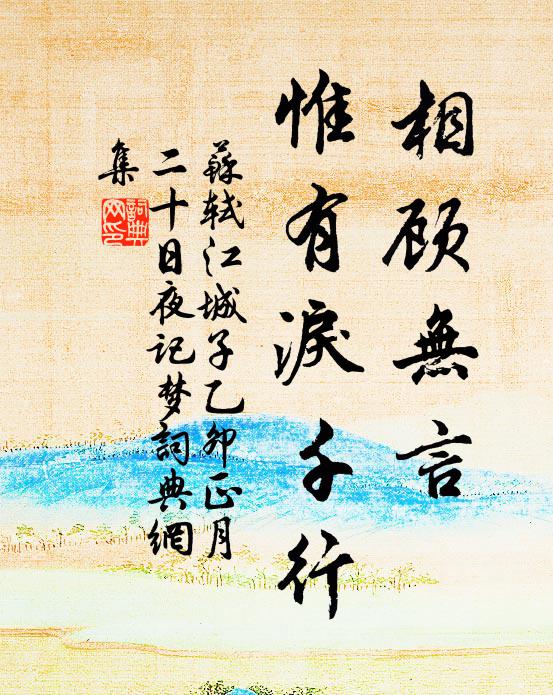 相顾無言
惟有淚千行
蘇軾江城子乙卯正月
二十日夜记梦詞典網
集
詞典
网印